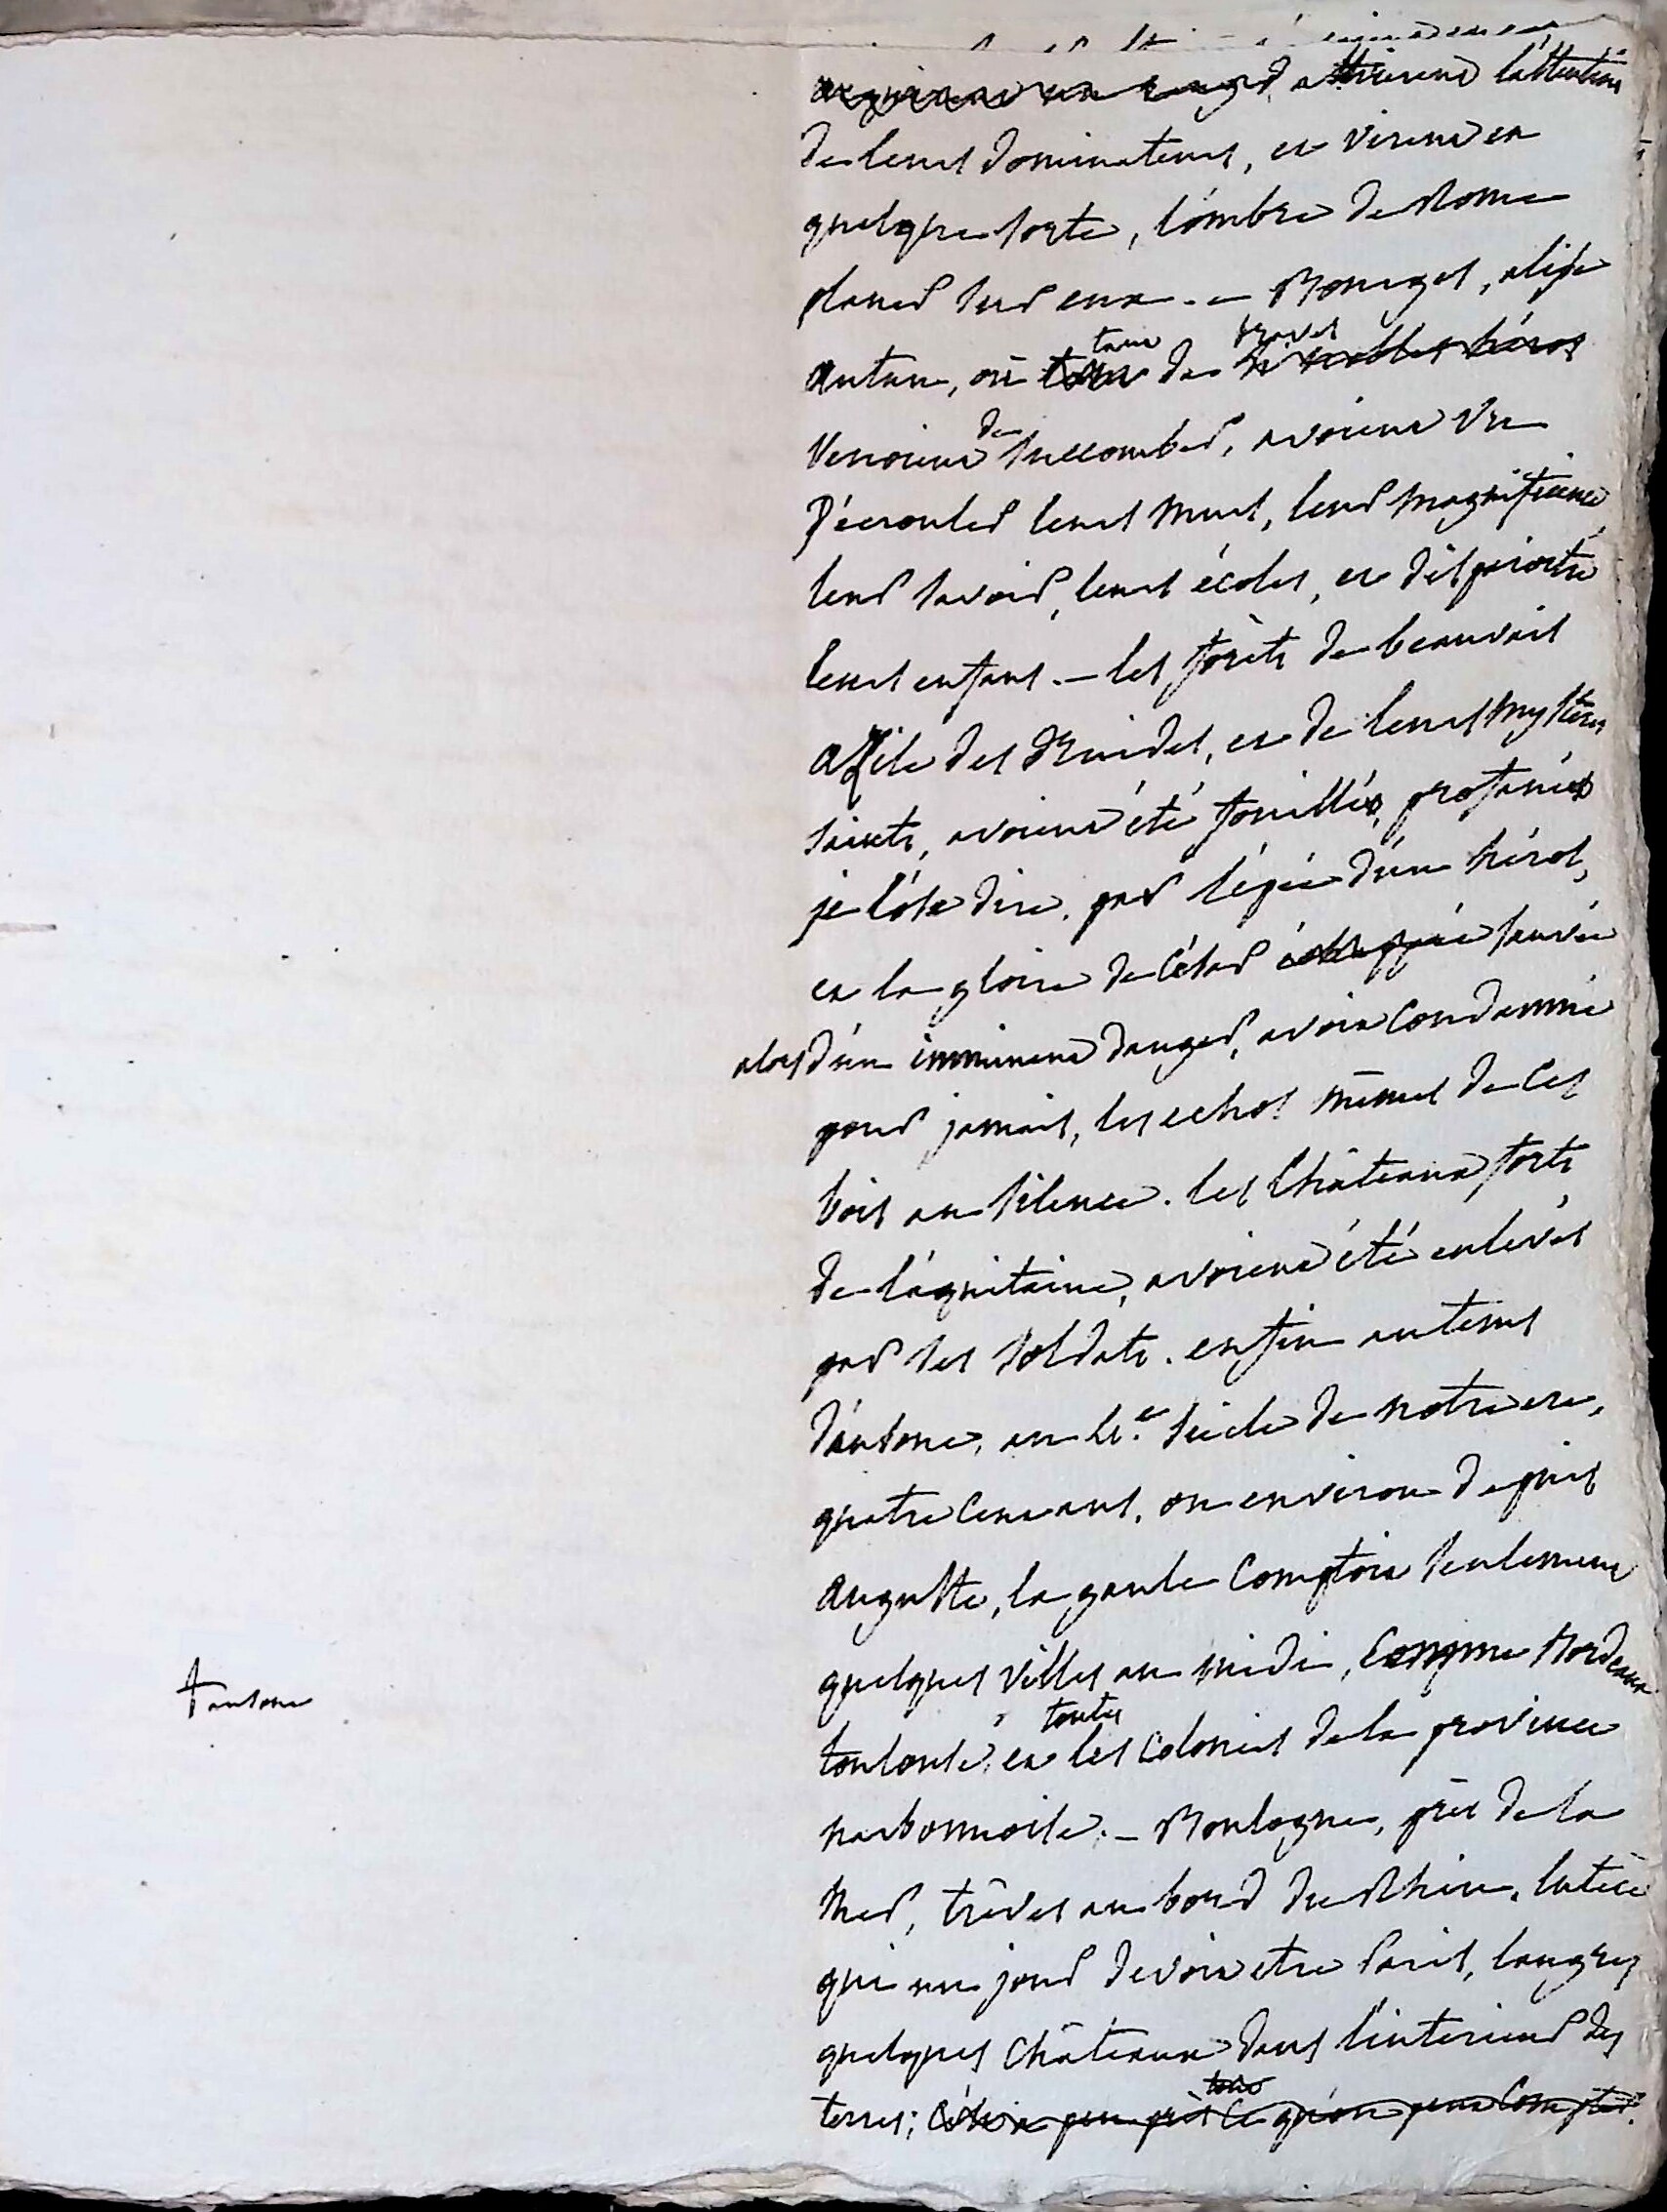 attirerent l'attention
de leurs dominateurs, et virent en
quelque sorte, l'ombre de Rome
planer sur eux. — Bourges, alise
autun, où tant de braves
venoient de succomber, avoient vu
s'écrouler leurs murs, leur magnificence
leur savoir, leurs écoles, et disparoitre
leurs enfans. — les forêts de beauvais
azile des druides, et de leurs mystères
saints, avoient été fouillées, profanées
je l'ose dire, par l'épée d'un héros,
et la gloire de César sauvée
alors d'un imminent danger, avoit condamné
pour jamais, les echos mêmes de ces
bois au silence. les châteaux forts
de l'aquitaine, avoient été enlevés
par ses soldats. enfin au tems
d'ausone, au siècle de notre ere,
quatre cent ans, ou environ depuis
auguste, la gaule comptoit seulement
quelques villes au midi, comme Bordeaux
toulouse, et toutes les colonies de la province
narbonnoise. — Boulogne, près de la
mer, trèves au bord du Rhin, lutèce
qui un jour devoit etre Paris, langres
quelques châteaux dans l'interieur des
terres; c'étoit à peu près tout ce qu'on peut compter.